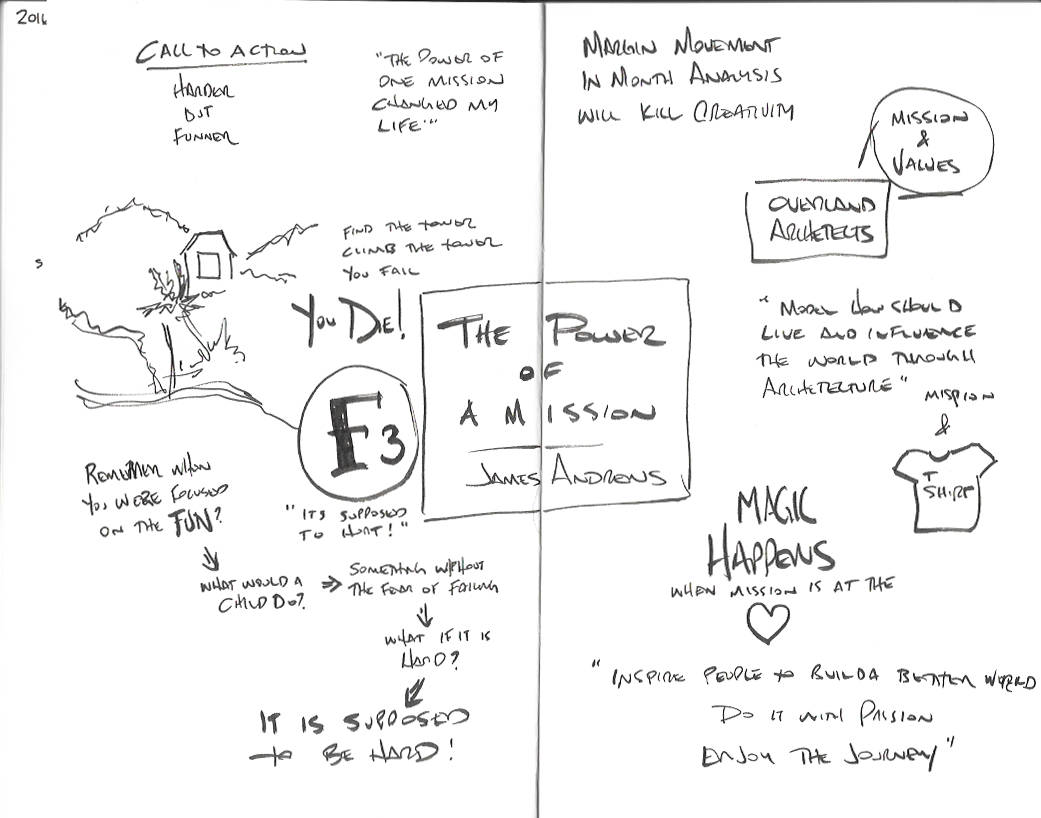 2016
CALL TO ACTION
HARDER
BUT
FUNNER
"THE POWER OF
ONE MISSION
CHANGED MY
LIFE"
S
FIND THE TOWER
CLIMB THE TOWER
YOU FAIL
YOU DIE!
F3
"ITS SUPPOSED
TO HURT!"
REMEMBER WHEN
YOU WERE FOCUSED
ON THE FUN?
WHAT WOULD A
CHILD DO?
SOMETHING WITHOUT
THE FEAR OF FAILING
WHAT IF IT IS
HARD?
IT IS SUPPOSED
TO BE HARD!
THE POWER
OF
A MISSION
JAMES ANDREWS
MARGIN MOVEMENT
IN MONTH ANALYSIS
WILL KILL CREATIVITY
MISSION
&
VALUES
OVERLAND
ARCHETECTS
"MODEL HOW SHOULD
LIVE AND INFLUENCE
THE WORLD THROUGH
ARCHETECTURE"
MISSION
&
T
SHIRT
MAGIC
HAPPENS
WHEN MISSION IS AT THE
"INSPIRE PEOPLE TO BUILD A BETTER WORLD
DO IT WITH PASSION
ENJOY THE JOURNEY"